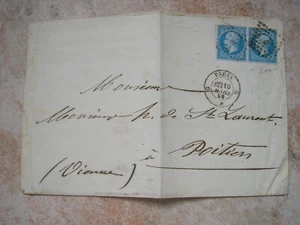 PARIS
Monsieur
Monsieur h. de St. Laurent,
à
Poitiers
(Vienne)